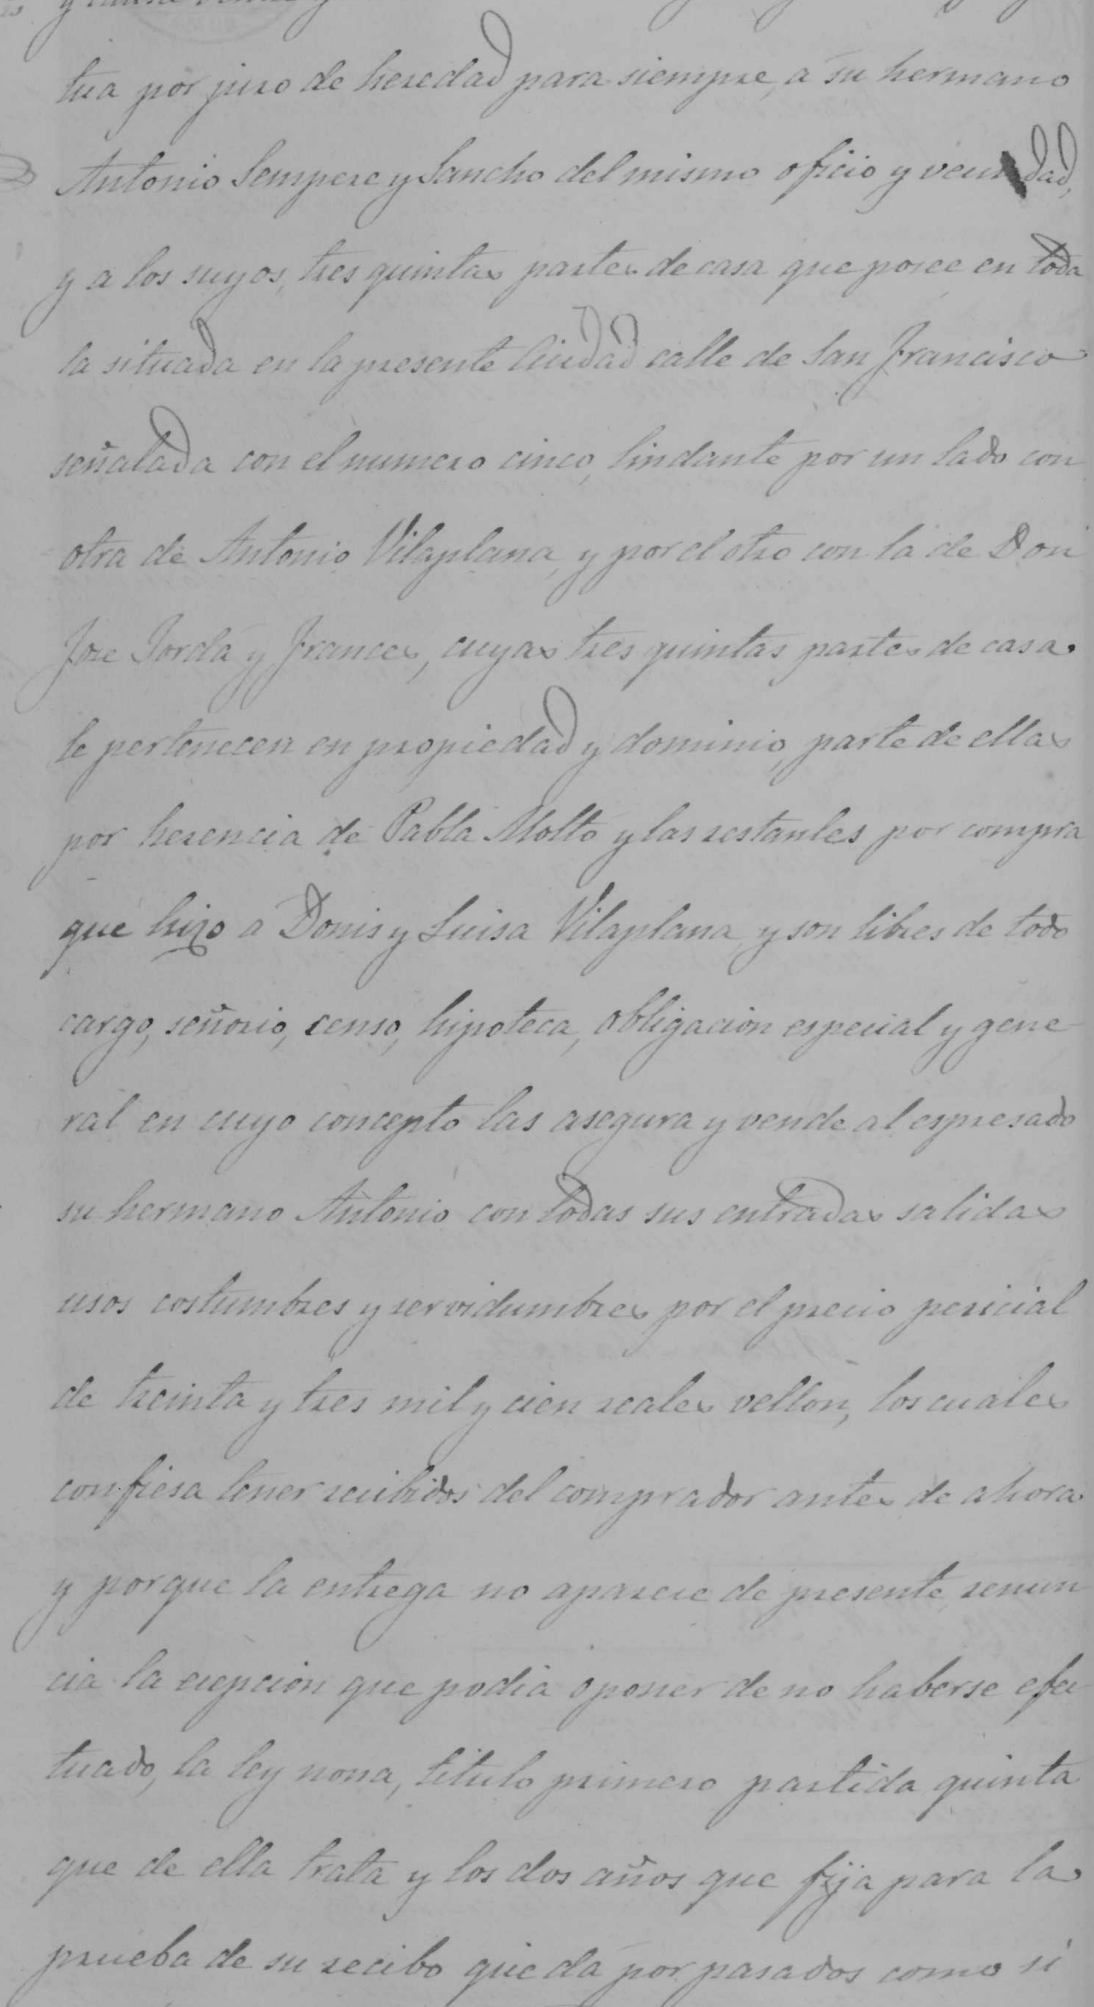 tua por juro de heredad para siempre, a su hermano
Antonio Sempere y Sancho del mismo oficio y vecindad,
y a los suyos, tres quintas partes de casa que posee en toda
la situada en la presente Ciudad calle de San Francisco
señalada con el numero cinco, lindante por un lado con
otra de Antonio Vilaplana, y por el otro con la de Don
Jose Jorda y Frances, cuyas tres quintas partes de casa
le pertenecen en propiedad y dominio, parte de ellas
por herencia de Pabla Molto y las restantes por compra
que hizo a Donis y Luisa Vilaplana, y son libres de todo
cargo, señorio, censo, hipoteca, obligacion especial y gene
ral en cuyo concepto las asegura y vende al espresado
su hermano Antonio con todas sus entradas salidas
usos costumbres y servidumbres por el precio pericial
de treinta y tres mil y cien reales vellon, los cuales
confiesa tener recibidos del comprador antes de ahora
y porque la entrega no aparece de presente, renun
cia la ecepcion que podia oponer de no haberse efec
tuado, la ley nona, titulo primero partida quinta
que de ella trata y los dos años que fija para la
prueba de su recibo que da por pasados como si